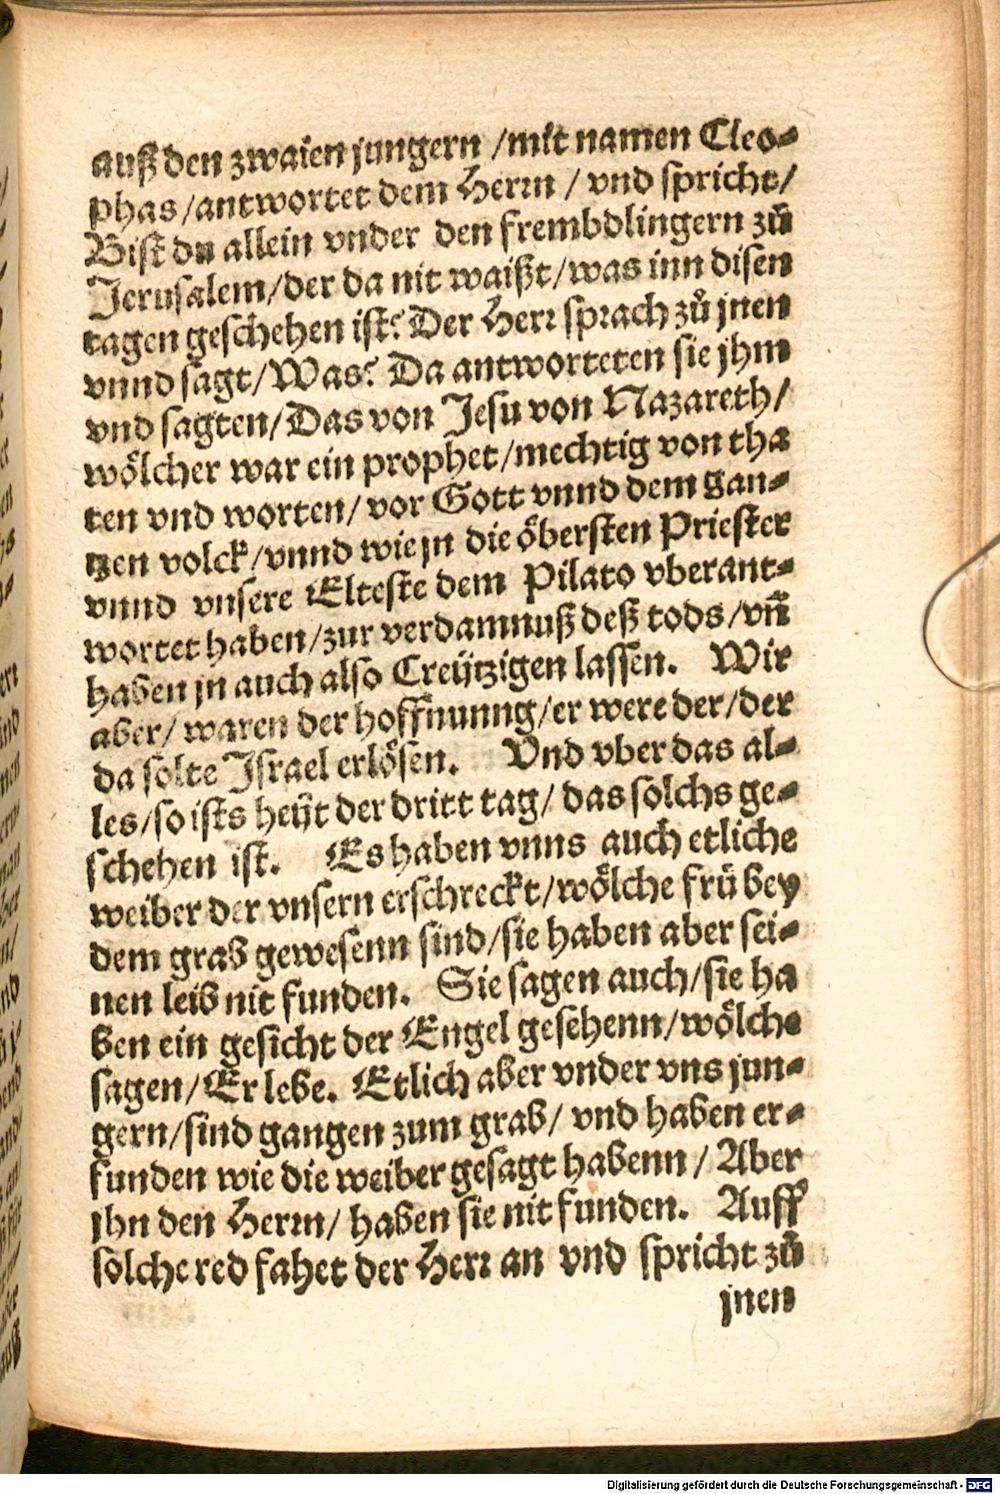 auß den zwaien jungern /mit namen Cleo-
phas/antwortet dem Herrn / vnd spricht/
Bist du allein vnder den frembdlingern zů
Jerusalem/der da nit waißt/was inn disen
tagen geschehen ist? Der Herr sprach zů jnen
vnnd sagt/Was? Da antworteten sie jhm
vnd sagten/Das von Jesu von Nazareth/
wölcher war ein prophet/mechtig von tha
ten vnd worten/ vor Gott vnnd dem gan-
tzen volck/vnnd wie jn die öbersten Priester
vnnd vnsere Elteste dem Pilato vberant-
wortet haben/zur verdamnuß deß tods/vñ
haben jn auch also Creÿtzigen lassen. Wir
aber/ waren der hoffnunng/er were der/der
da solte Israel erlösen. Vnd vber das al-
les/so ists heÿt der dritt tag/ das solchs ge-
schehen ist. Es haben vnns auch etliche
weiber der vnsern erschreckt/wölche frü bey
dem grab gewesenn sind/sie haben aber sei-
nen leib nit funden. Sie sagen auch/sie ha
ben ein gesicht der Engel gesehenn/wölche
sagen/Er lebe. Etlich aber vnder vns jun-
gern/sind gangen zum grab/ vnd haben er-
funden wie die weiber gesagt habenn/ Aber
jhn den Herrn/ haben sie nit funden. Auff
solche red fahet der Herr an vnd spricht zů
jnen
Digitalisierung gefördert durch die Deutsche Forschungsgemeinschaft - DFG